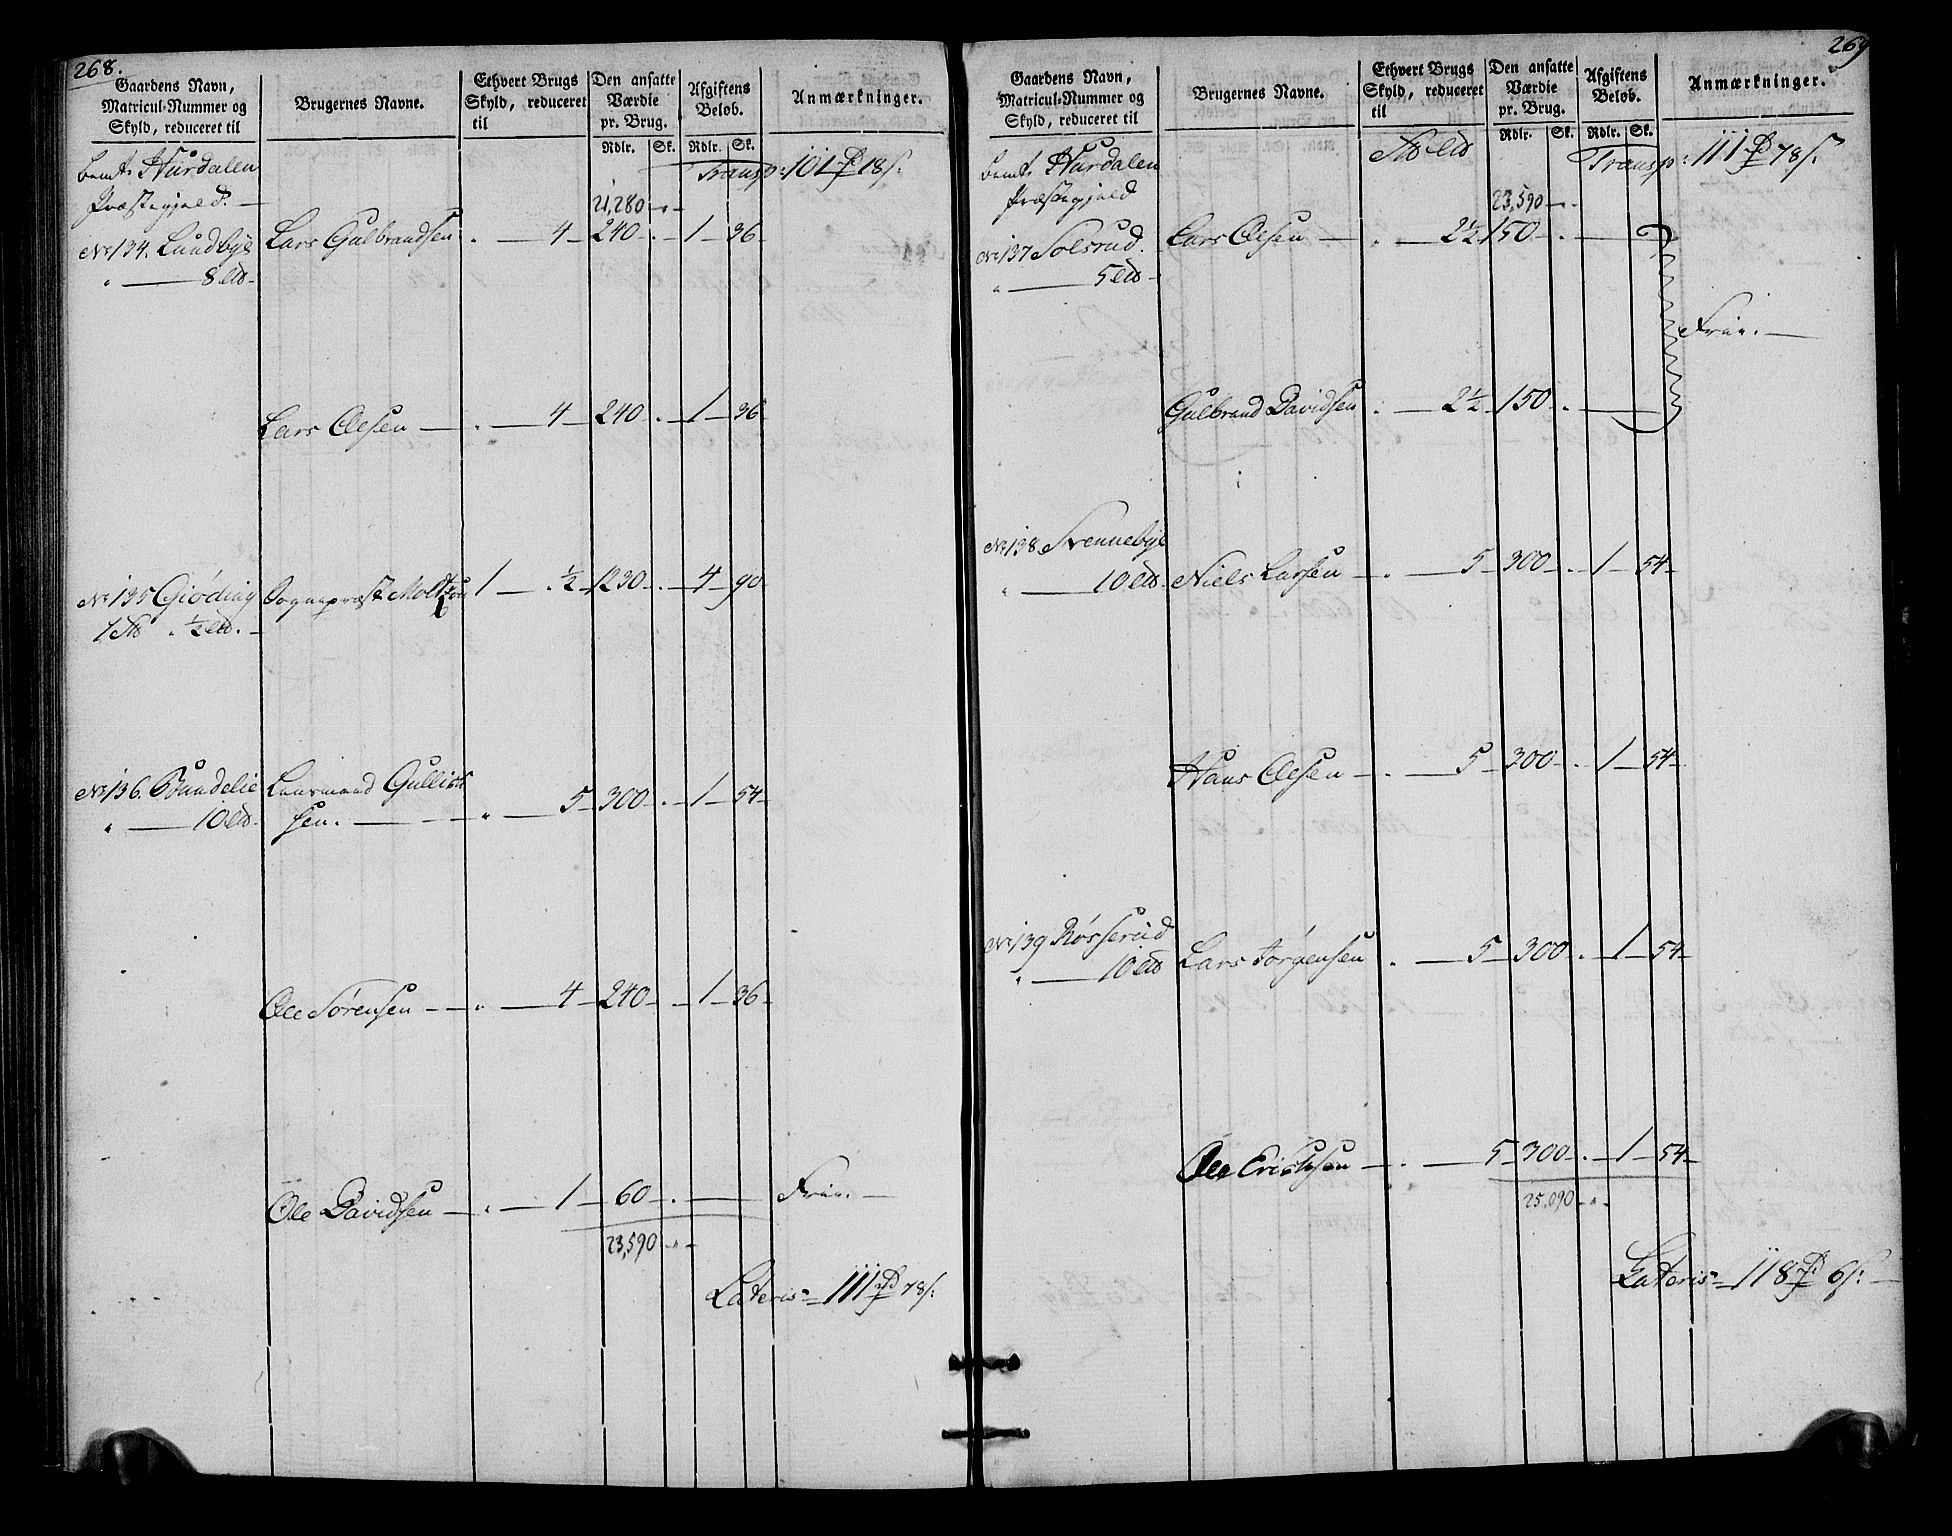 268.
Gaardens Navn, Matricul-Nummer og Skyld, reduceret til
Brugernes Navne.
Ethvert Brugs Skyld, reduceret til
Den ansatte Værdie pr. Brug.
Afgiftens Beløb.
Anmærkninger.
Rdlr. Sk. Rdlr. Sk.
bemt: Hurdalen Transp: 101 18 s:
Præstegjeld. 21,280
No 134. Lundbye Lars Gulbrandsen 4 240 1 36
8 
Lars Olesen 4 240 1 36
No 135 Giøding Sognepræst Moltzou 1 ½ 1230 4 90
1 ½
No 136. Bundelie Lensmand Gullich 5 300 1 54
10 sen.
Ole Sørensen 4 240 1 36
Ole Davidsen 1 60 Frie.
23,590
Lateris 111 78 s:
269
Gaardens Navn, Matricul-Nummer og Skyld, reduceret til
Brugernes Navne.
Ethvert Brugs Skyld, reduceret til
Den ansatte Værdie pr. Brug.
Afgiftens Beløb.
Anmærkninger.
Rdlr. Sk. Rdlr. Sk.
bemt: Hurdalen Transp: 111 78 s:
Præstegjeld 23,590
No 137 Solsrud. Lars Olesen 2½ 150
5
Frie.
Gulbrand Davidsen 2½ 150
No 138 Svennebye
10 Niels Larsen 5 300 1 54
Hans Olesen 5 300 1 54
No 139 Røsserud
10 Lars Jørgensen 5 300 1 54
Ole Erichsen 5 300 1 54
25,090
Lateris 118 6 s: